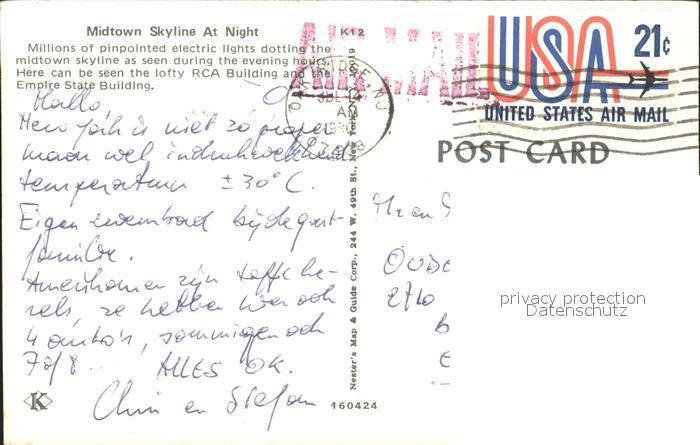 Midtown Skyline At Night
Millions of pinpointed electric lights dotting the
midtown skyline as seen during the evening hours.
Here can be seen the lofty RCA Building and the
Empire State Building.
K12
AIR MAIL
USA 21¢
UNITED STATES AIR MAIL
POST CARD
Hallo
New York is niet zo proper
maar wel indrukwekkend
temperatuur ± 30° C.
Eigen zwembad bij de gast-
familie.
Amerikanen zijn toffe ke-
rels, ze hebben hier ook
4 auto's, sommigen ook
7 of 8... ALLES OK.
Chris en Stefan
Nester's Map & Guide Corp., 244 W. 49th St., New York, 10019
OUDE
2710
privacy protection
Datenschutz
K
160424